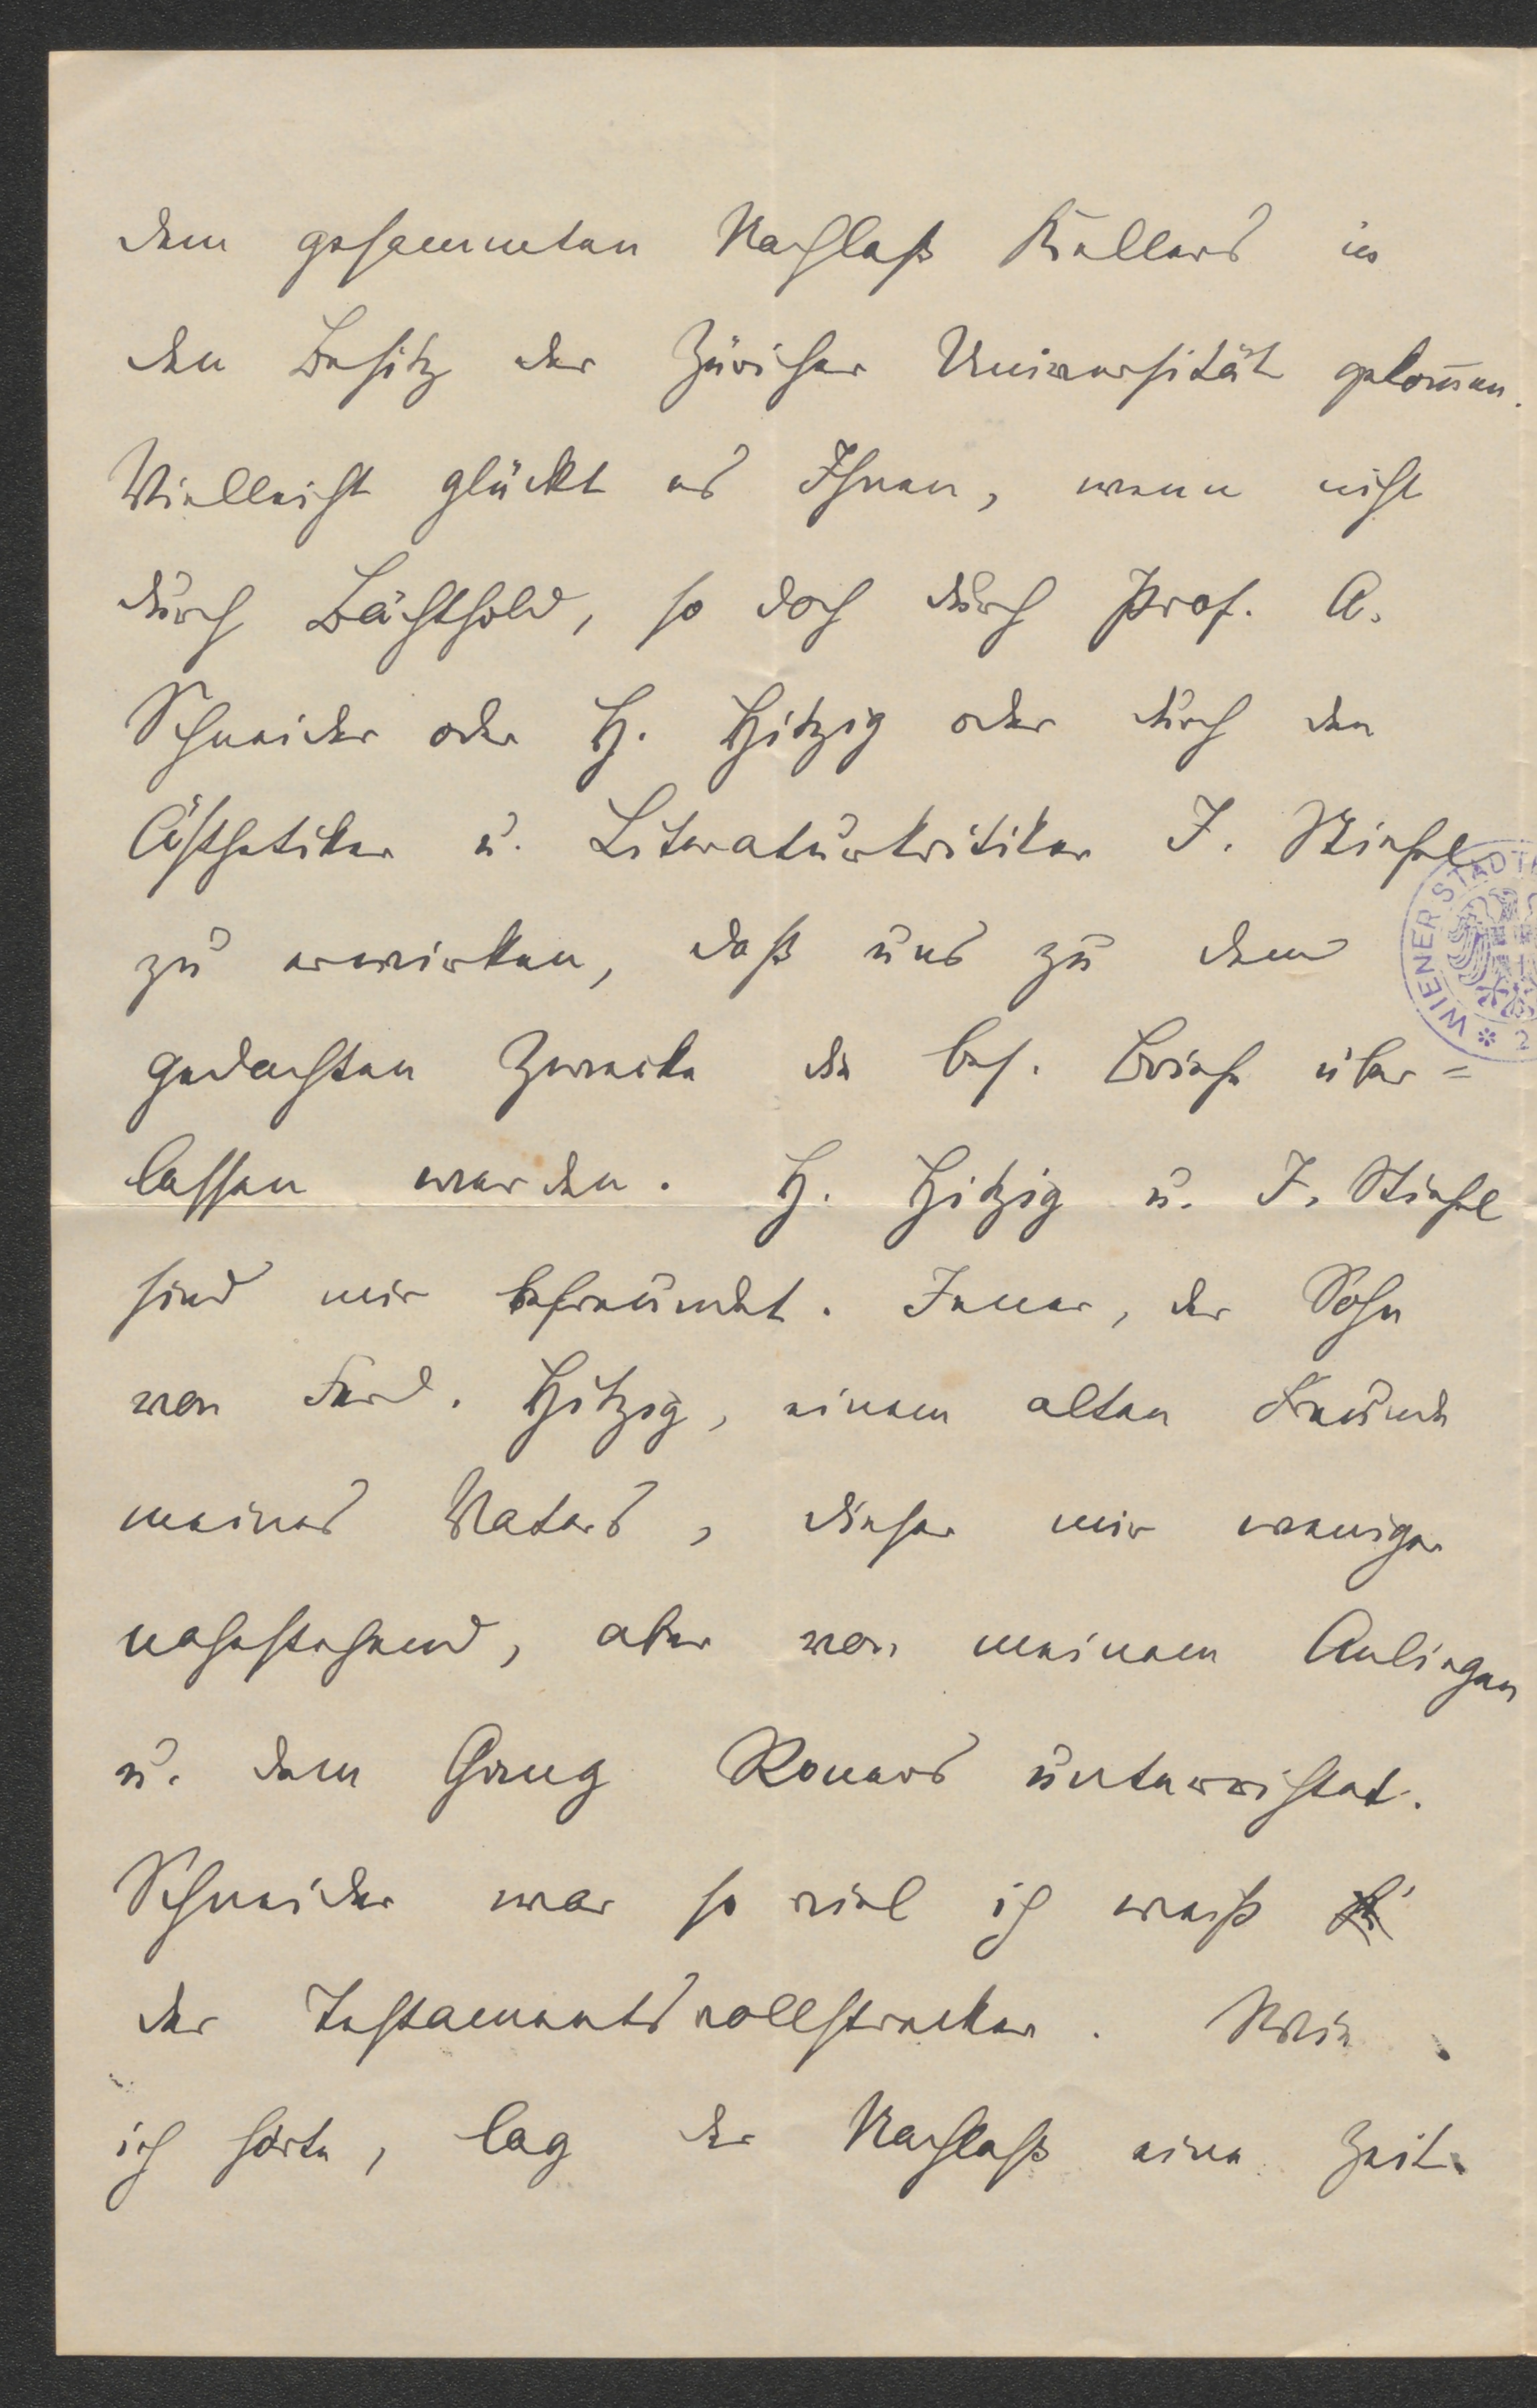 dem gesammten Nachlaß Kellers in
den Besitz der Züricher Universität gekom̄en.
Vielleicht glückt es Ihnen, wenn nicht
durch Bächthold, so doch durch Prof. A.
Schneider oder H. Hitzig oder durch den
Ästhetiker u. Literaturkritiker J. Stiefel
zu erwirken, daß uns zu dem
gedachten Zwecke die bes. Briefe über=
lassen werden. H. Hitzig u. J. Stiefel
sind mir befreundet. Jener, der Sohn
von Ferd. Hitzig, einem alten Freunde
meines Vaters, dieser mir weniger
nahestehend, aber von meinem Anliegen
u. dem Gang Roners unterrichtet.
Schneider war so viel ich weiß
der Testamentsvollstrecker. Wie
ich hörte, lag der Nachlaß eine Zeit
WIENER STADT